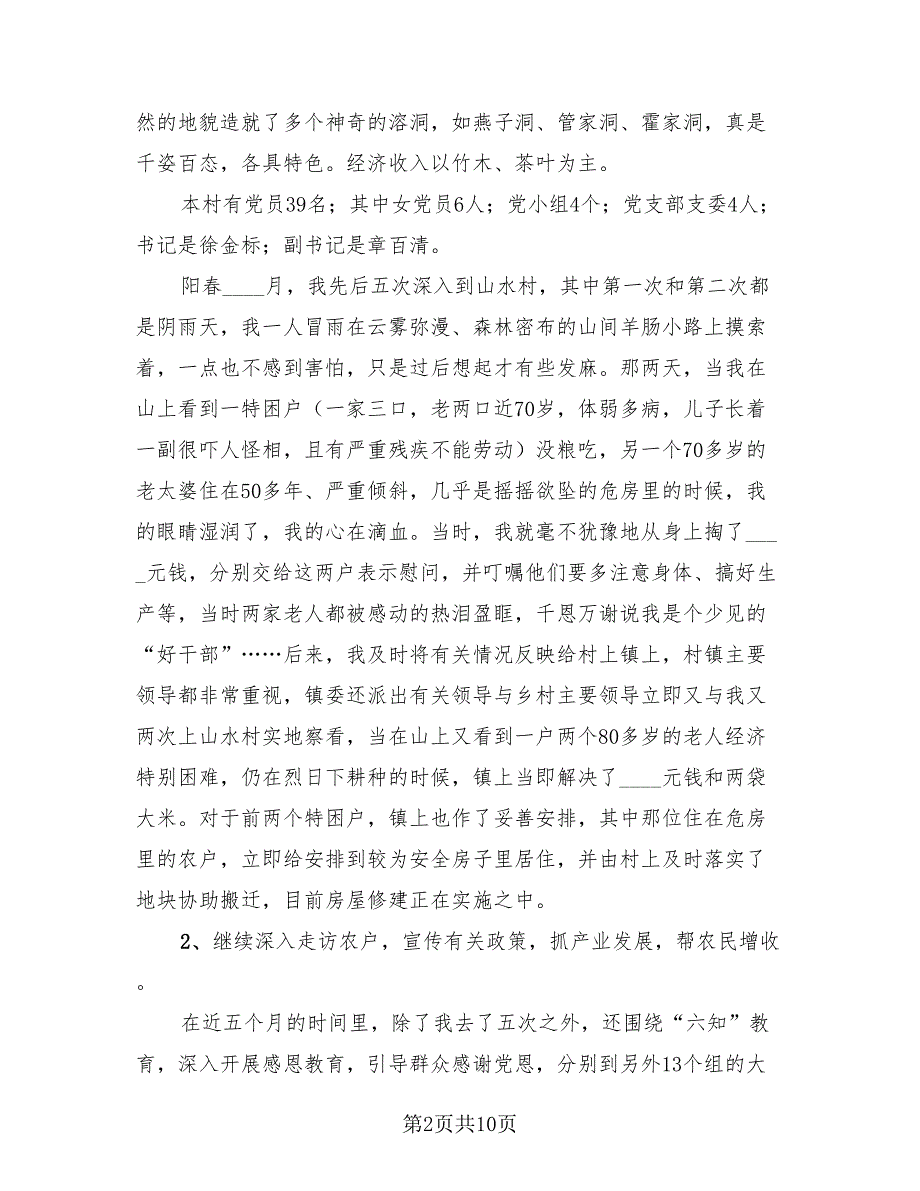 然的地貌造就了多个神奇的溶洞，如燕子洞、管家洞、霍家洞，真是
千姿百态，各具特色。经济收入以竹木、茶叶为主。
本村有党员39名；其中女党员6人；党小组4个；党支部支委4人；
书记是徐金标；副书记是章百清。
阳春____月，我先后五次深入到山水村，其中第一次和第二次都
是阴雨天，我一人冒雨在云雾弥漫、森林密布的山间羊肠小路上摸索
着，一点也不感到害怕，只是过后想起才有些发麻。那两天，当我在
山上看到一特困户（一家三口，老两口近70岁，体弱多病，儿子长着
一副很吓人怪相，且有严重残疾不能劳动）没粮吃，另一个70多岁的
老太婆住在50多年、严重倾斜，几乎是摇摇欲坠的危房里的时候，我
的眼睛湿润了，我的心在滴血。当时，我就毫不犹豫地从身上掏了___
_元钱，分别交给这两户表示慰问，并叮嘱他们要多注意身体、搞好生
产等，当时两家老人都被感动的热泪盈眶，千恩万谢说我是个少见的
“好干部”……后来，我及时将有关情况反映给村上镇上，村镇主要
领导都非常重视，镇委还派出有关领导与乡村主要领导立即又与我又
两次上山水村实地察看，当在山上又看到一户两个80多岁的老人经济
特别困难，仍在烈日下耕种的时候，镇上当即解决了____元钱和两袋
大米。对于前两个特困户，镇上也作了妥善安排，其中那位住在危房
里的农户，立即给安排到较为安全房子里居住，并由村上及时落实了
地块协助搬迁，目前房屋修建正在实施之中。
2、继续深入走访农户，宣传有关政策，抓产业发展，帮农民增收
。
在近五个月的时间里，除了我去了五次之外，还围绕“六知”教
育，深入开展感恩教育，引导群众感谢党恩，分别到另外13个组的大
第2页共10页